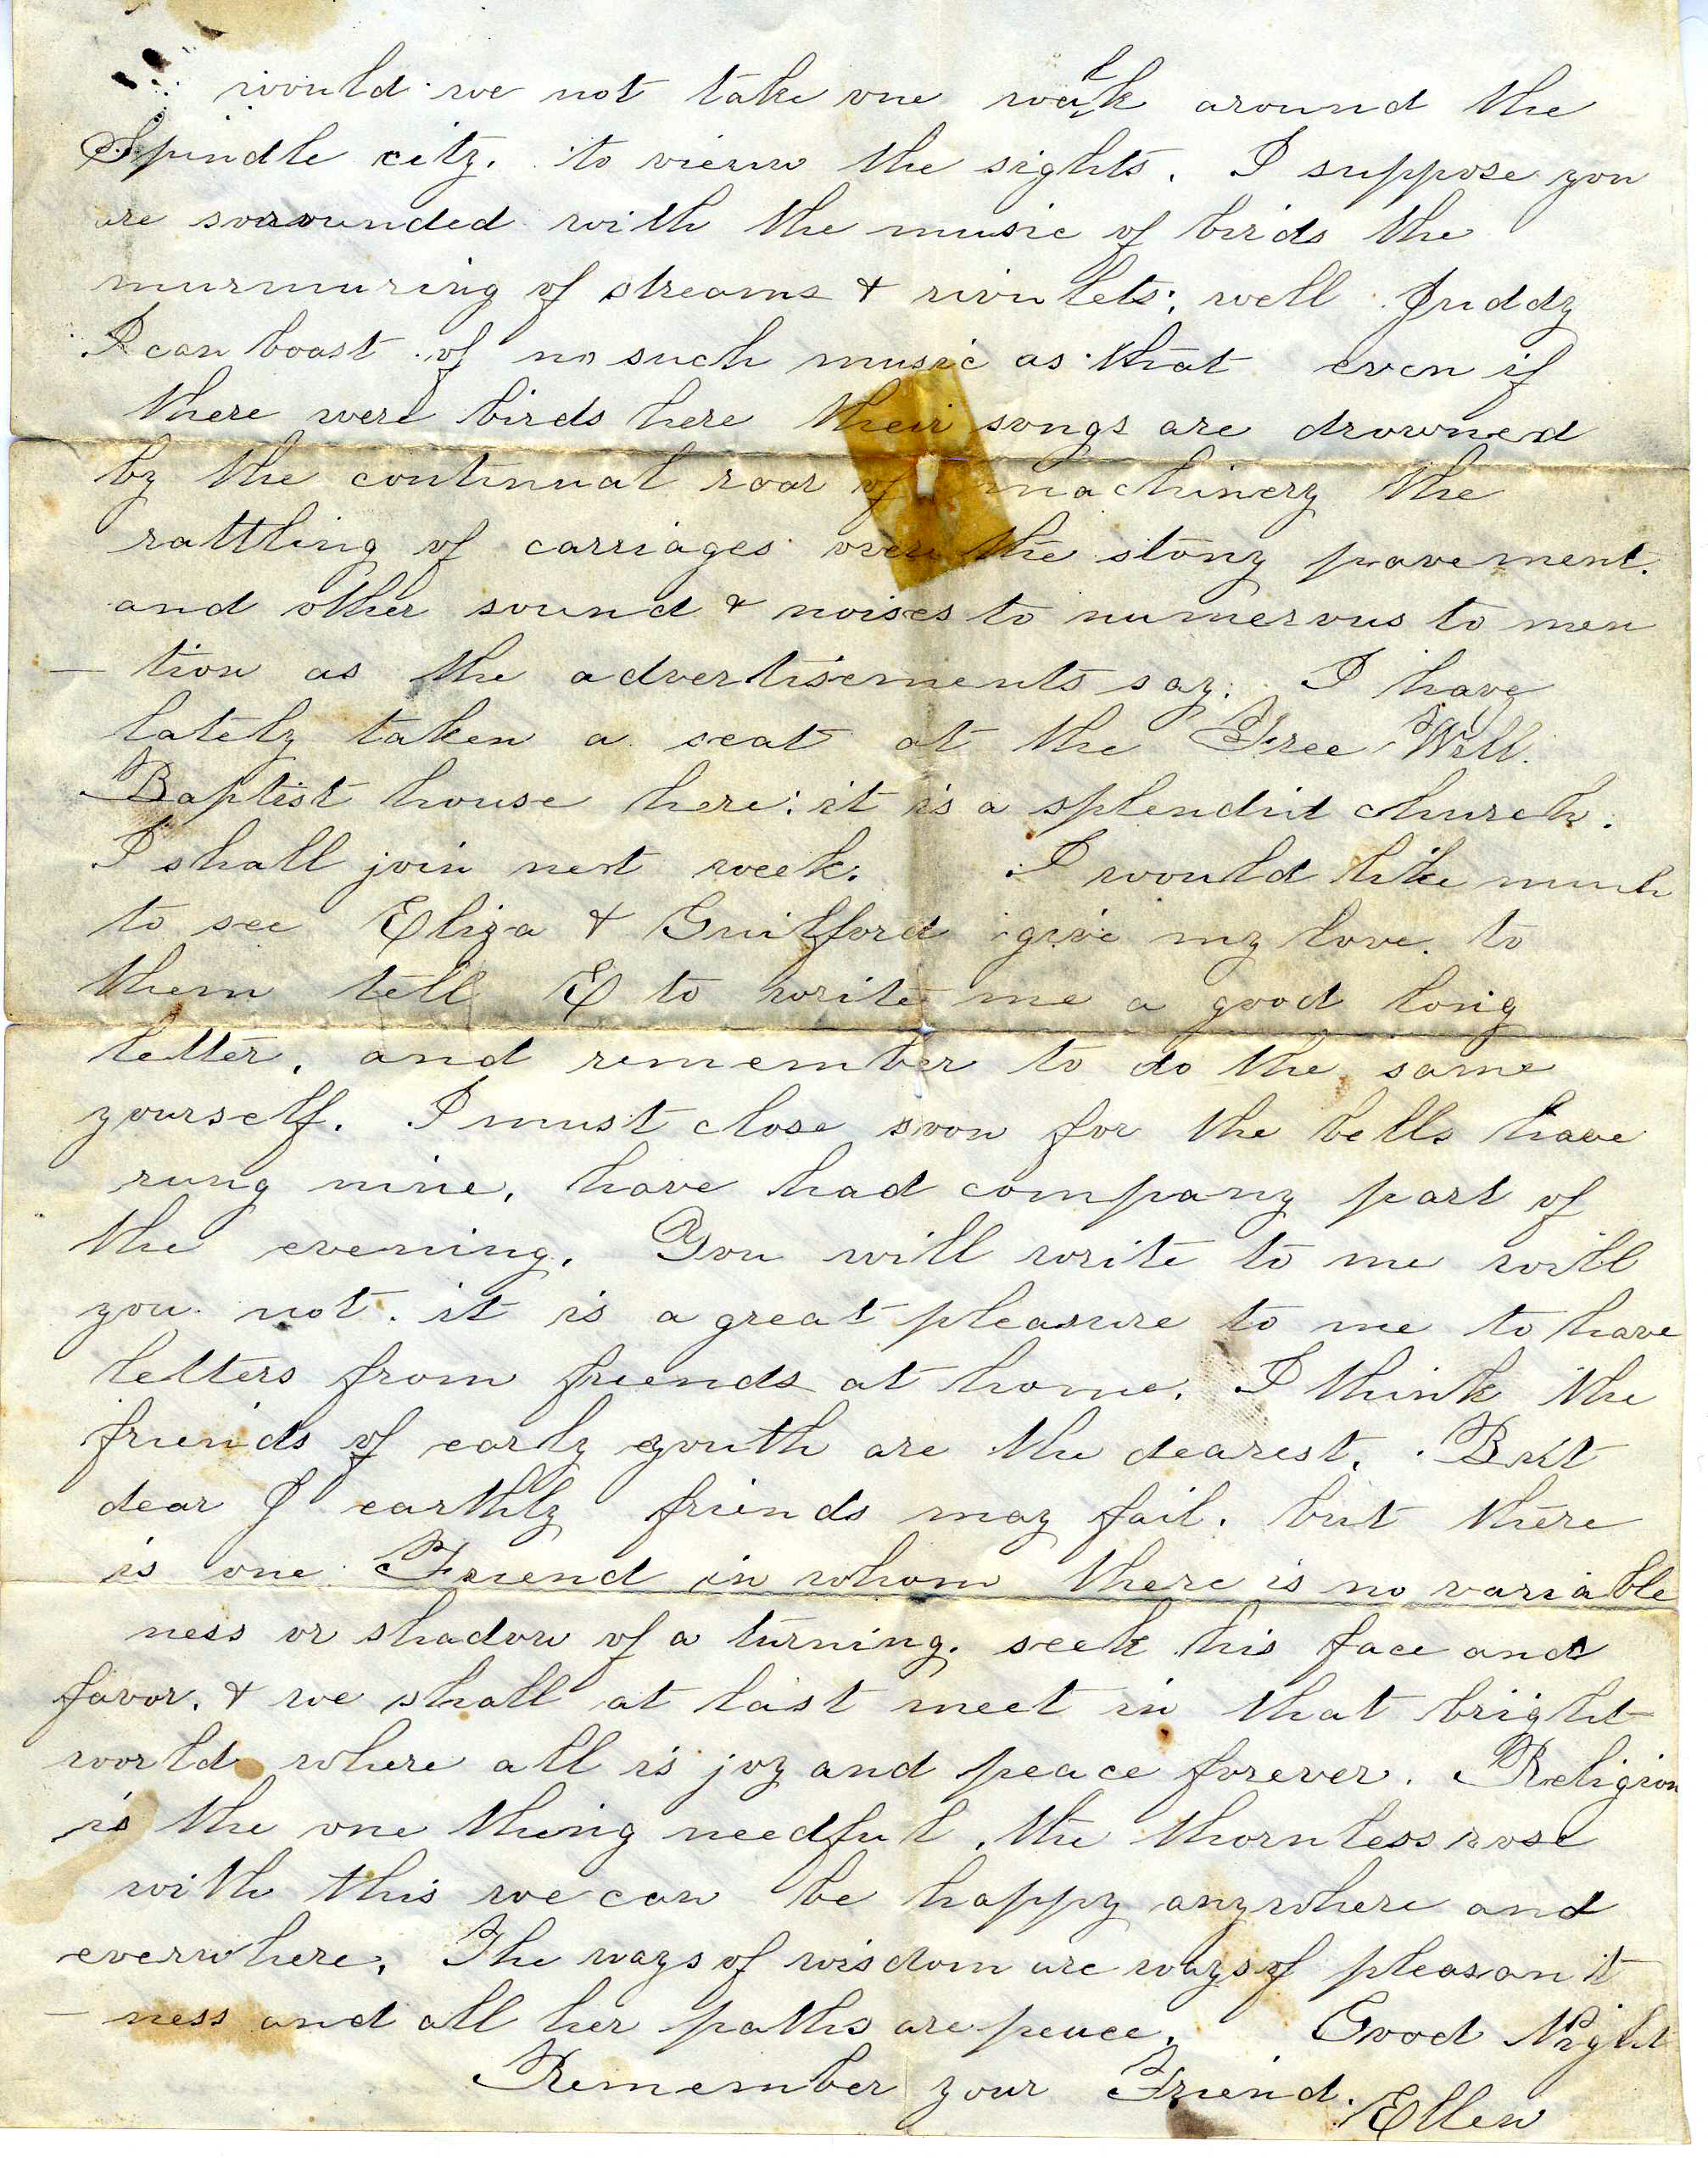 would we not take one walk around the
Spindle city. to view the sights. I suppose you
are sorrounded with the music of birds the
murmuring of streams & rivulets; well Juddy
I can boast of no such music as that even if
there were birds here their songs are drowned
by the continual roar of machinery the
rattling of carriages over the stony pavement.
and other sound & noises to numerous to men
- tion as the advertisements say. I have
lately taken a seat at the Free Will.
Baptist house here: it is a splendid church.
I shall join next week. I would like much
to see Eliza & Guilford give my love to
them tell E to write me a good long
letter, and remember to do the same
yourself. I must close soon for the bells have
rung nine, have had company part of
the evening. You will write to me will
you not. it is a great pleasure to me to have
letters from friends at home. I think the
friends of early youth are the dearest. But
dear J earthly friends may fail. but there
is one Friend in whom there is no variable
ness or shadow of a turning. seek his face and
favor. & we shall at last meet in that bright
world where all is joy and peace forever. Religion
is the one thing needful, the thornless rose
with this we can be happy anywhere and
everwhere. The ways of wisdom are ways of pleasant
- ness and all her paths are peace. Good Night
Remember your Friend.
Ellen